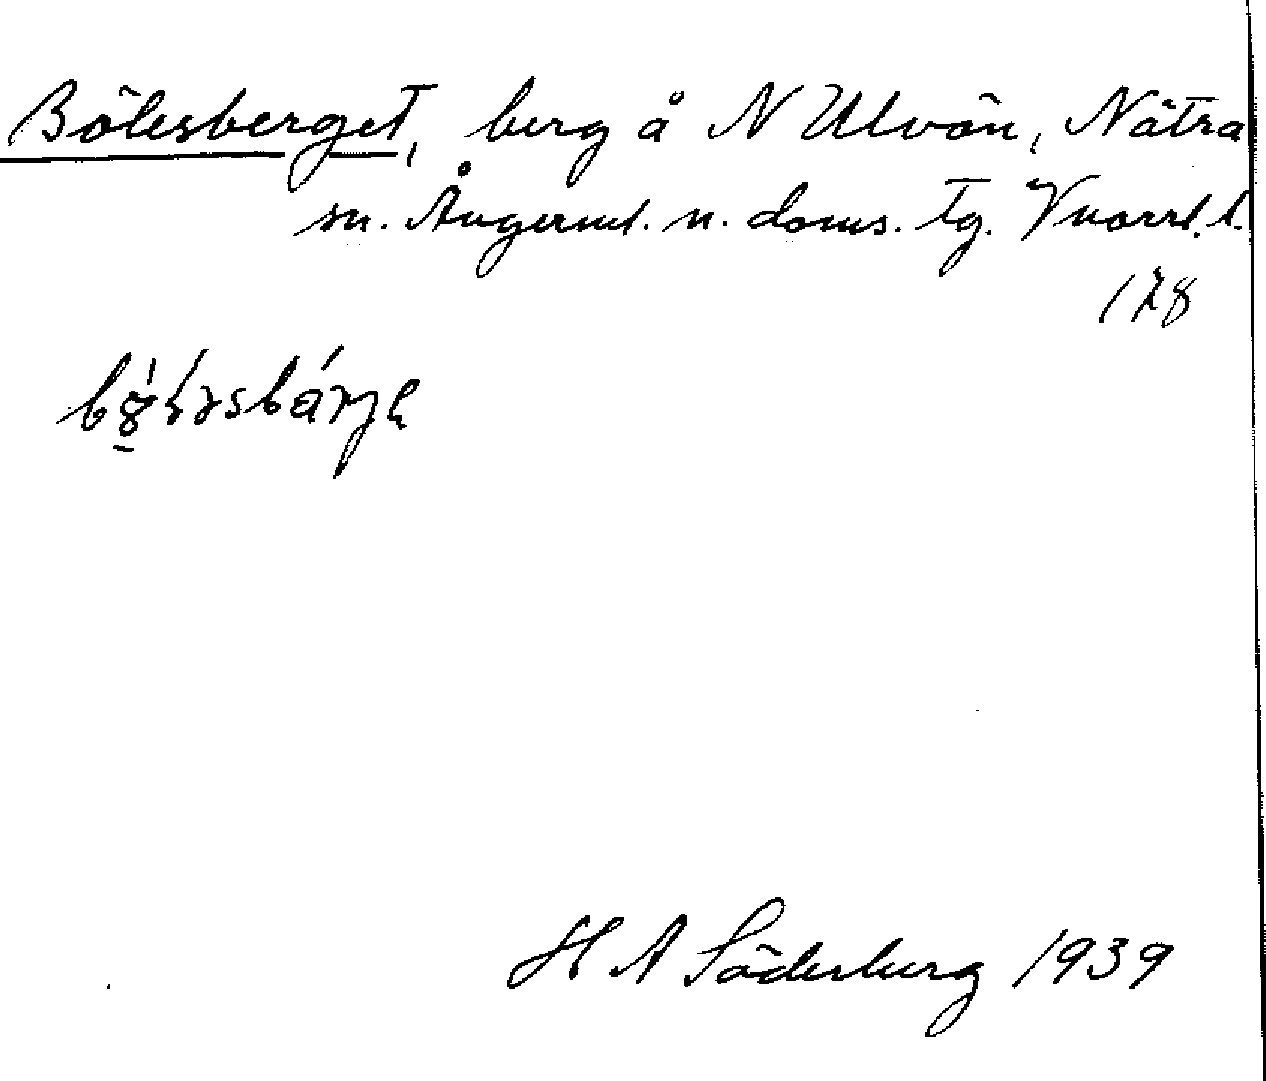 Bölesberget, berg å N Ulvön, Nätra
sn. Ångerml. n. doms. tg. Vnorrl. l.
178
H A Söderberg 1939